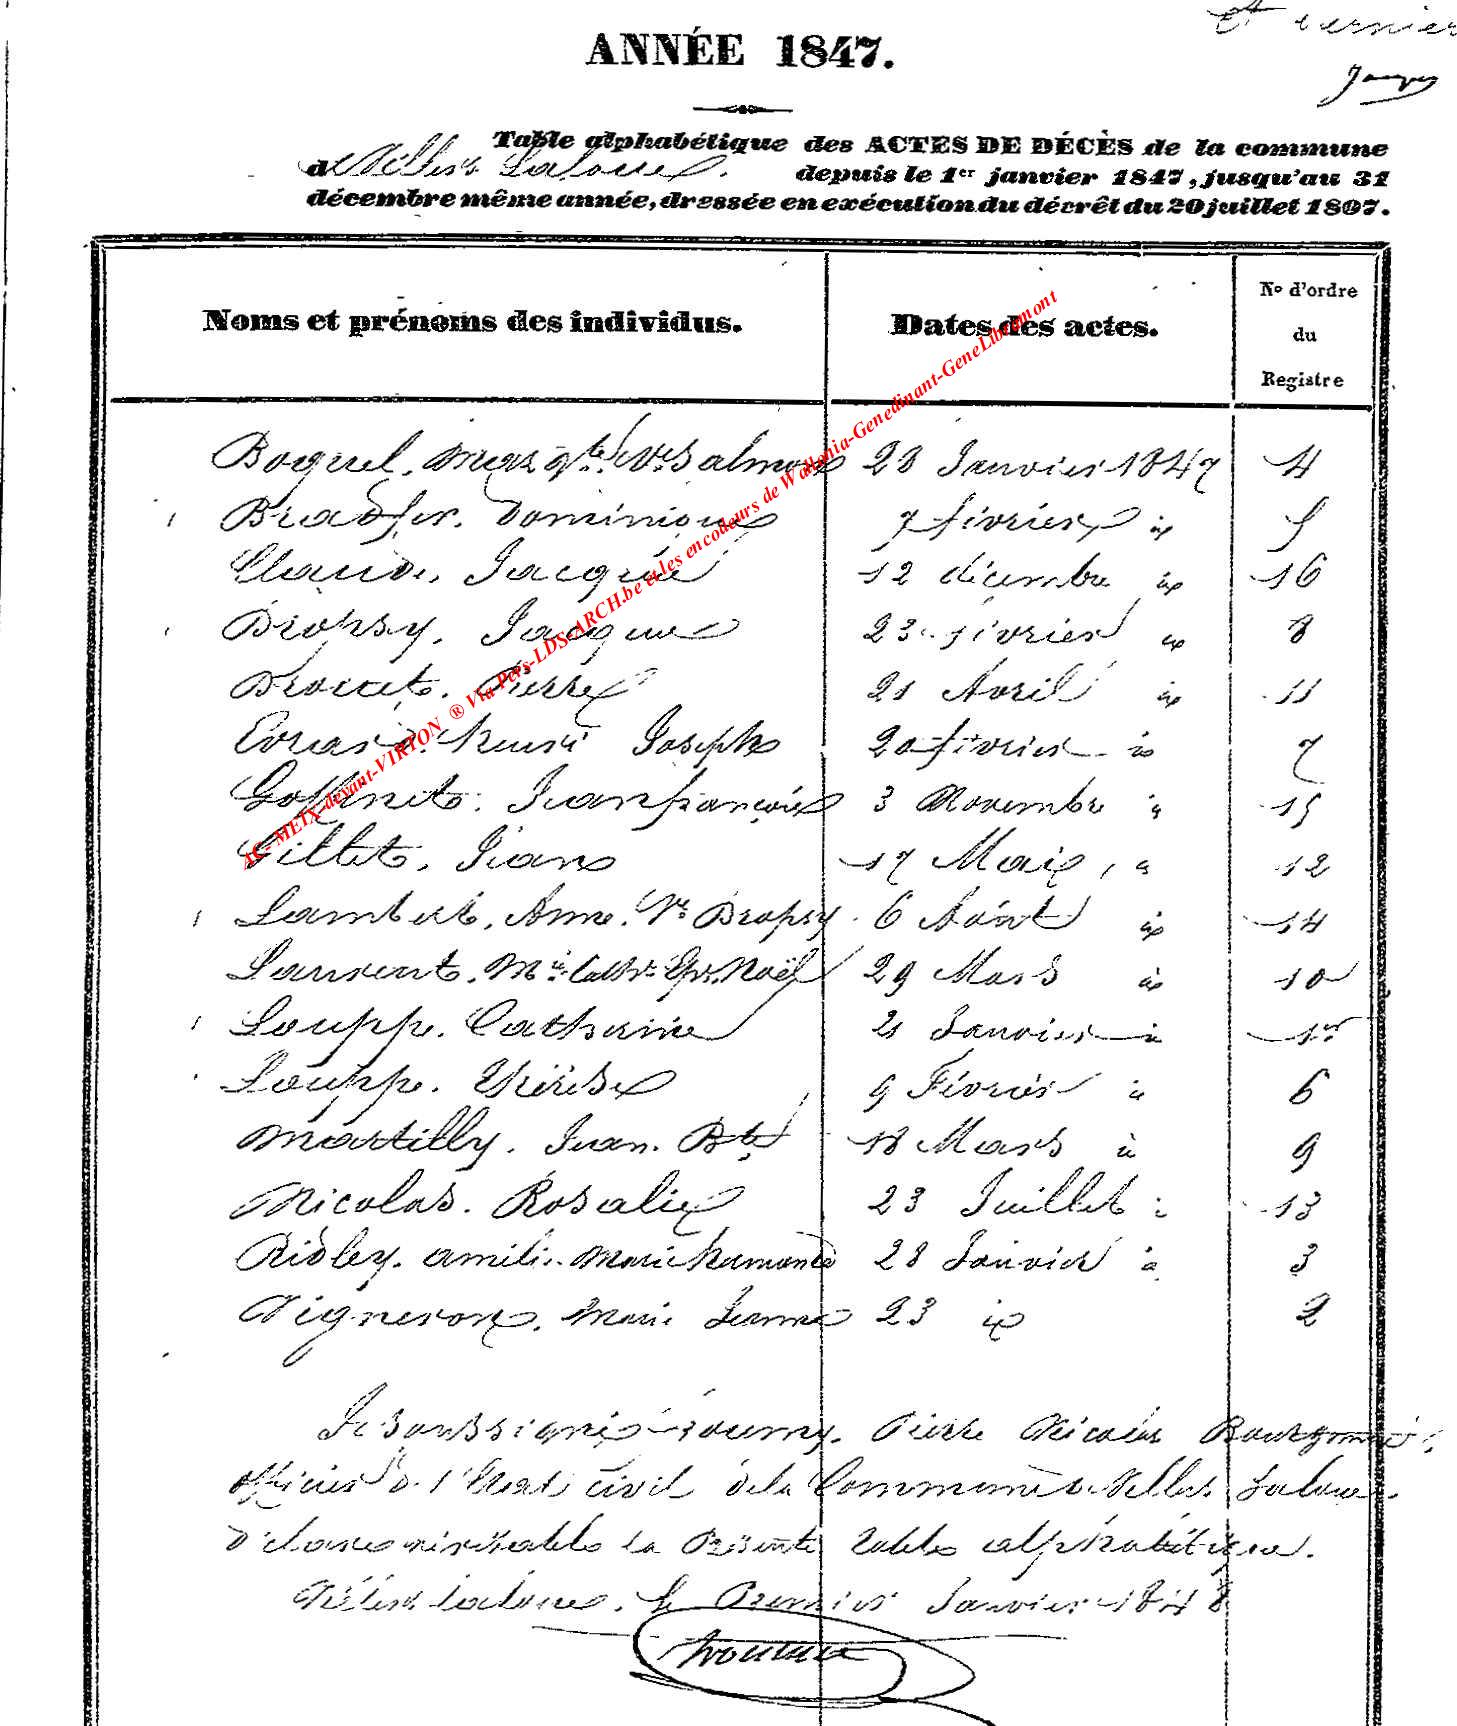 et dernier
ANNÉE 1847.
Table alphabétique des ACTES DE DÉCÈS de la commune
de Villers Laloue. depuis le 1er janvier 1847, jusqu'au 31
décembre même année, dressée en exécution du décrêt du 20 juillet 1807.
Noms et prénoms des individus. Dates des actes. No d'ordre du Registre
AC- MEIX-devant-VIRTON ® Via Pers-LDS-ARCH.be et les encodeurs de Wallonia-Genedinant-GeneLibramont
Boquel, Margte Ve Salmon 28 Janvier 1847 4
Bradfer. Dominique 7 février id 5
Claude, Jacques 12 décembre id 16
Dropsy, Jacques 23 février id 8
Drouet. Pierre 21 Avril id 11
Evrard. henri Joseph 20 février id 7
Goffinet. Jean françois 3 Novembre id 15
Gillet, Jean 17 Mai, id 12
Lambert, Anne. Ve Dropsy 6 Août id 14
Laurent. Mie Cathe Epse Noël 29 Mars id 10
Louppe. Catherine 21 Janvier id 1er
Louppe. Thérèse 9 Février id 6
Martilly. Jean. Bte 18 Mars id 9
Nicolas. Rosalie 23 Juillet id 13
Ridley. amélie marie hermance 28 Janvier id 3
Vigneron, Marie Jeanne 23 id 2
Je soussigné Pierre Nicolas Bourgmestre,
officier de l'Etat civil de la Commune de Villers Laloue.
Déclare véritable la Présente table alphabétique.
Villers laloue, le Premier Janvier 1848